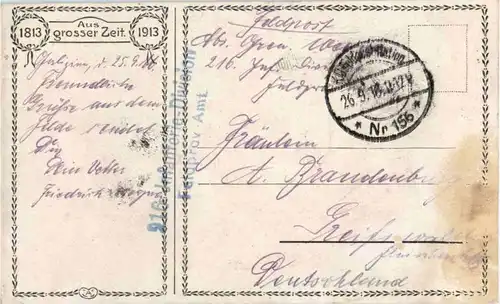 1813 Aus grosser Zeit. 1913
d. 25.9.16
Freundliche
Grüße aus dem
Felde sendet
Dir
Dein Vetter
Friedrich
216. Infanterie-Division
Feldprov. Amt.
Feldpost
Abs.
216. Inf.
26.9.16
* Nr 156 *
Fräulein
A. Brandenburg
Greifswald
Deutschland